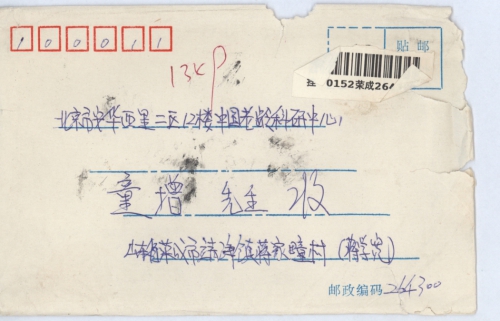 100011
贴 邮
13kp
挂 0152荣成264
北京市安华西里二区12楼中国老龄科研中心
童增 先生 收
山东省荣成市
镇蒋家疃村（蒋学
邮政编码264300